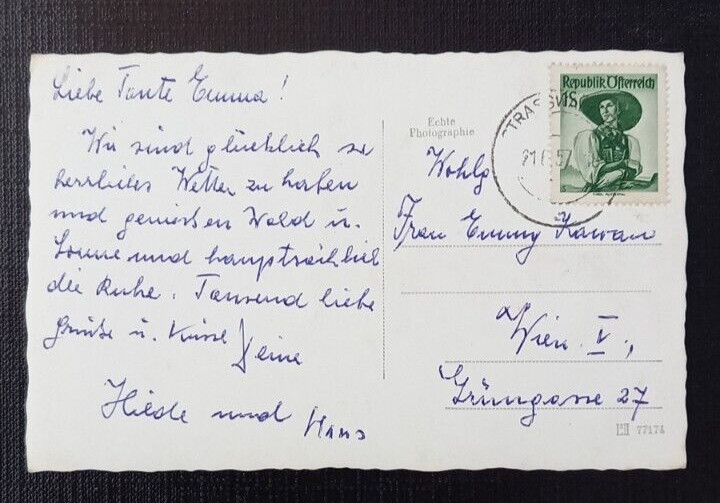 Liebe Tante Emma!
Wir sind glücklich so
herrliches Wetter zu haben
und geniessen Wald u.
Sonne und hauptsächlich
die Ruhe. Tausend liebe
Grüsse u. Küsse Deine
Heide und Hans
Echte
Photographie
Republik Österreich
1S
Wohlg
Frau Emmy
Wien V.,
Grüngasse 27
77174